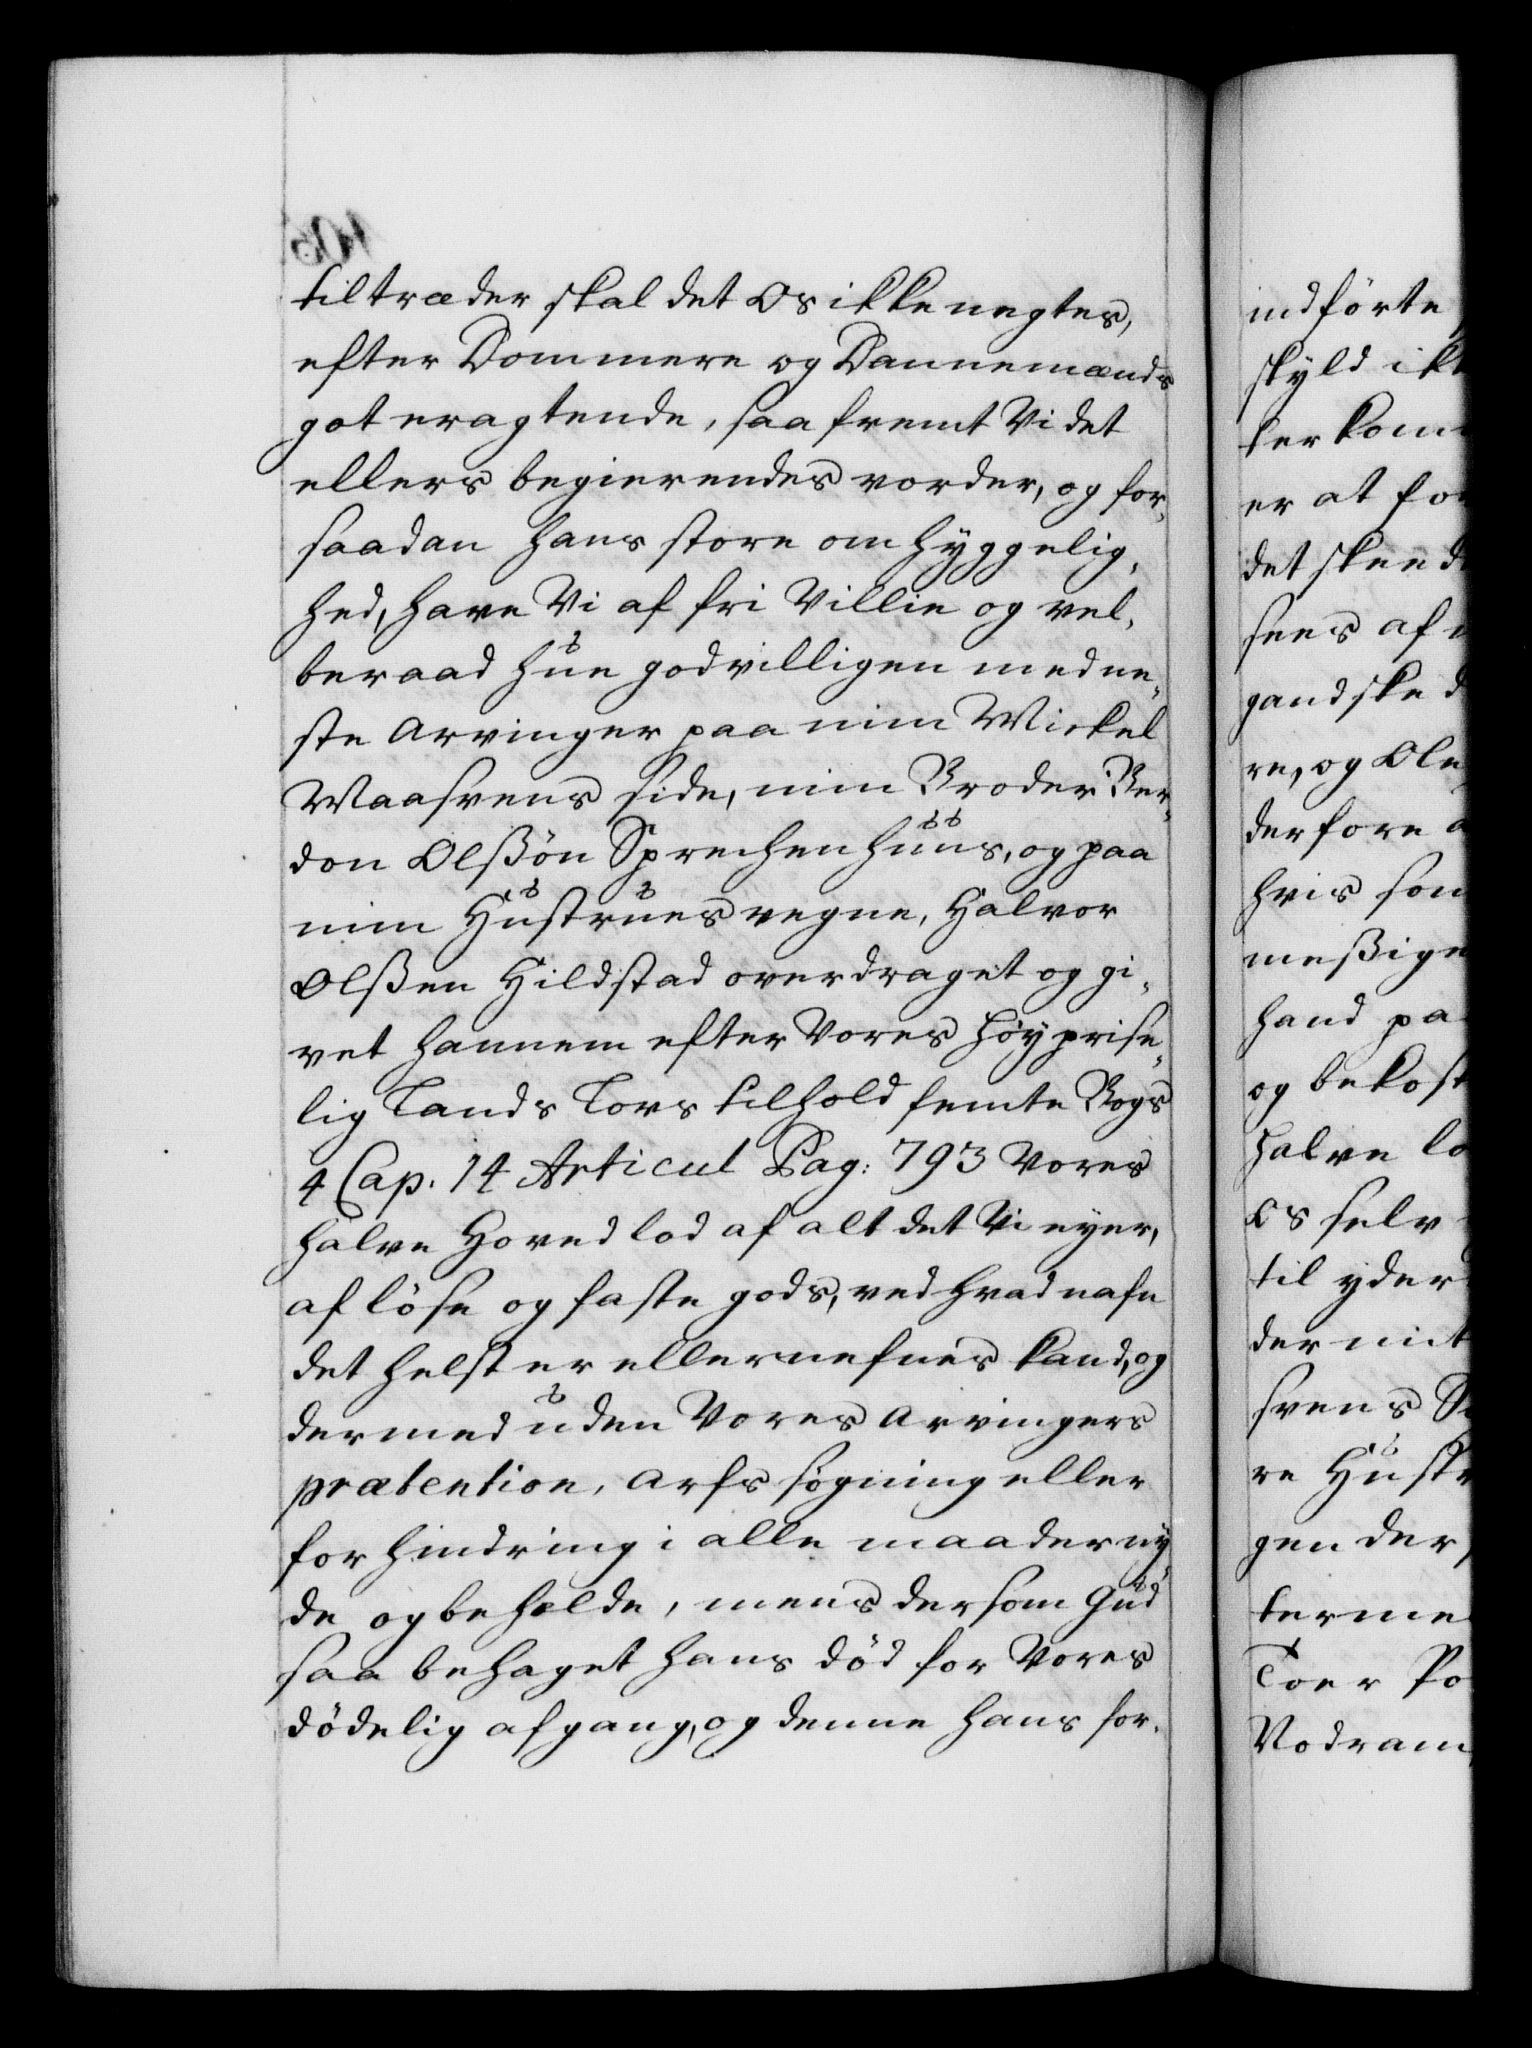 tiltræder skal det Os ikke negtes,
efter Dommere og Dannemænds
got eragtende, saa fremt Vi det
ellers begierendes vorder, og for,
saadan hans store om hyggelig,
hed, have Vi af fri Villie og vel,
beraad hue godvilligen med ne,
ste Arvinger paa min Mickel
Maasvens side, min Broder Bar,
don Olssøn Sprechenhuus, og paa
min Hustrues vegne, Halvor
Olssen Hildstad overdraget og gi,
vet hannem efter Vores höyprise,
lig Lands Lovs tilhold femte Bogs
4 Cap. 14 Articul Pag: 793 Vores
halve Hoved lod af alt det Vi eyer,
af löse og faste gods, ved hvad nafn
det helst er eller nefnes kand, og
dermed uden Vores Arvingers
prætention, Arfs søgning eller
forhindring i alle maader ny
de og beholde, mens dersom Gud
saa behaget hans död for Vores
dödelig afgang, og denne hans for,
indförte
skyld ikk
ter kom
er at for
det skeed
sees af
gandske d
re, og Ole
derfore
hvis som
messige
hand pa
og bekost
halve lo
Os selv
til yder
der mit
svens
re Hustr
gen der
terme
Toer Po
Vodram